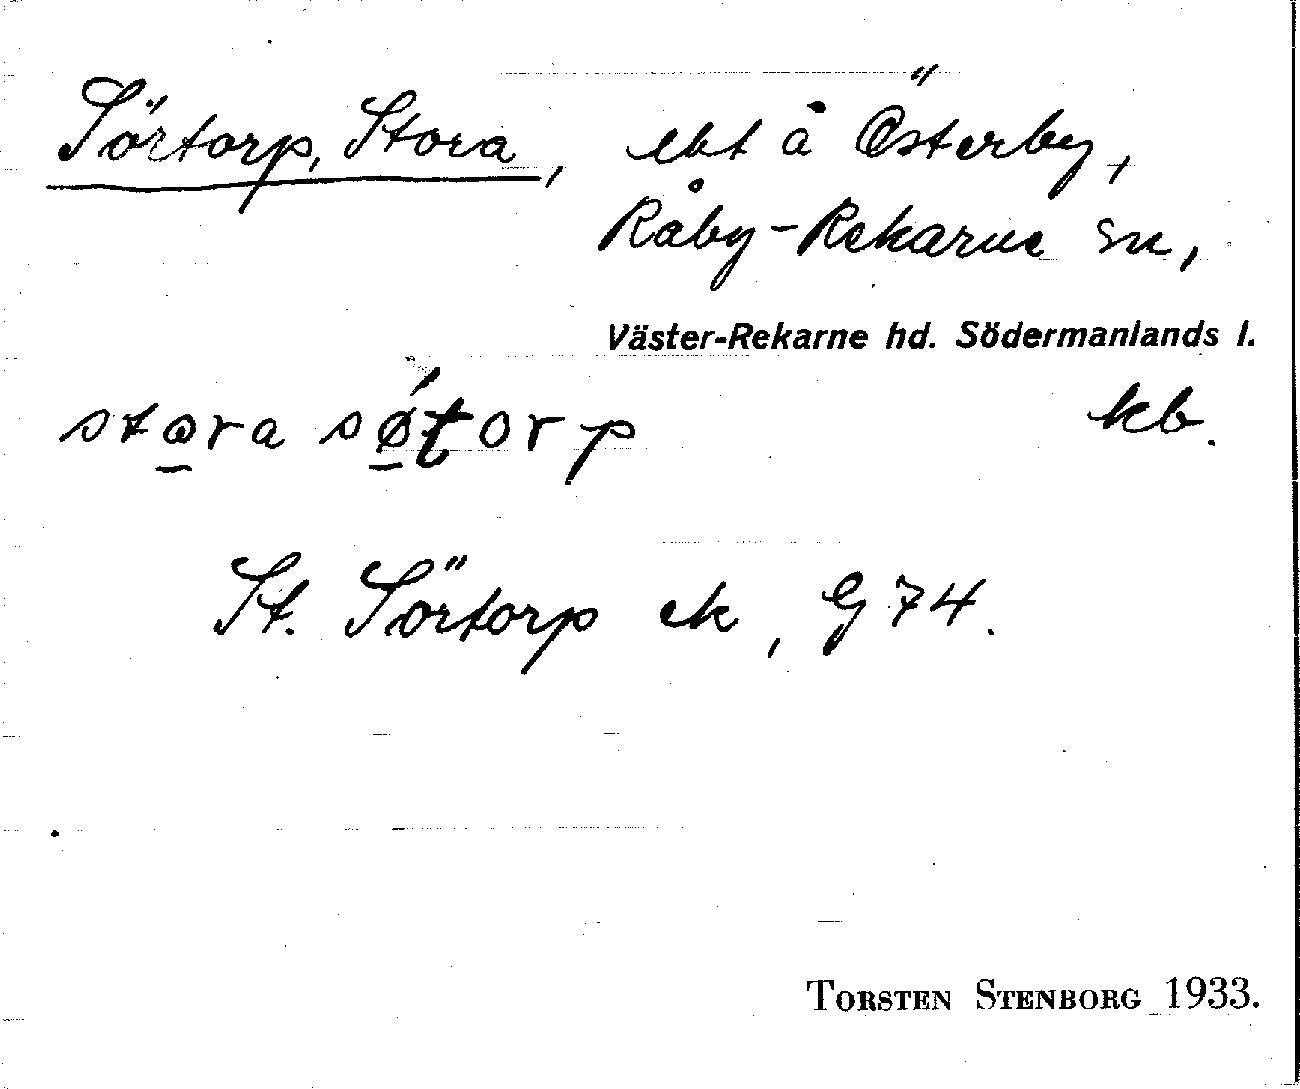 Sörtorp, Stora, ebt å Österby,
Råby-Rekarne sn,
Väster-Rekarne hd. Södermanlands l.
stora søtorp kb.
St. Sörtorp ek, G 74.
TORSTEN STENBORG 1933.